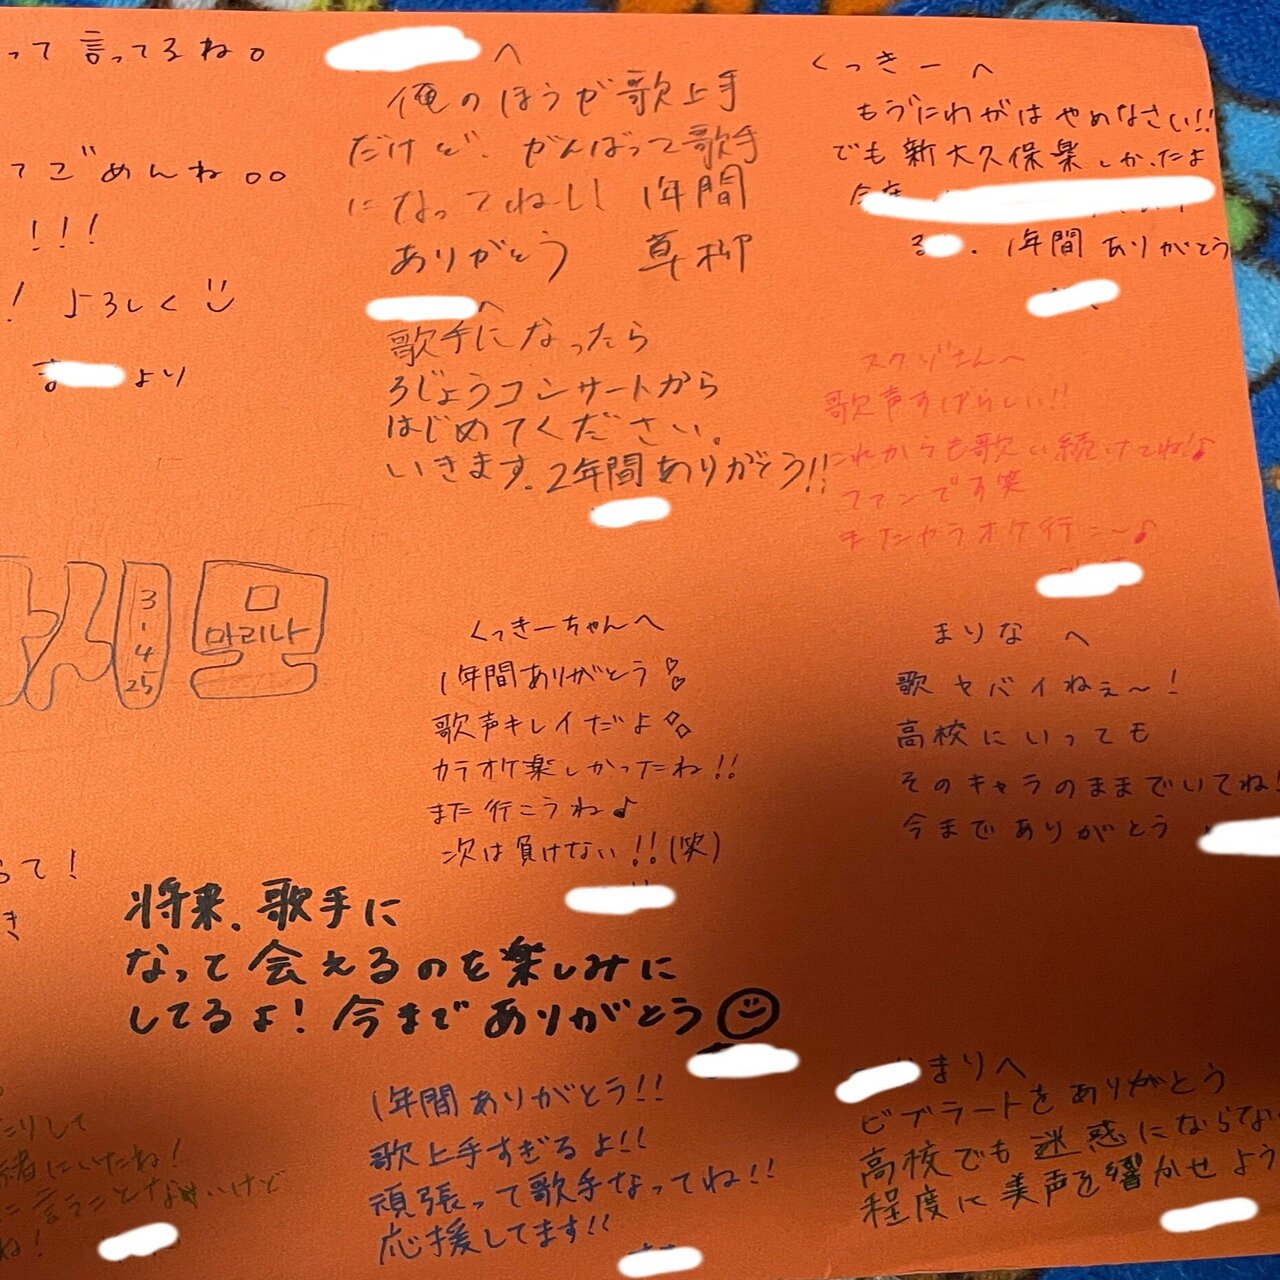 って言ってるね。
てごめんね。。
!!!
! よろしく
より
へ
俺のほうが歌上手
だけど、がんばって歌手
になってねしし 1年間
ありがとう 草柳
へ
歌手になったら
ろじょうコンサートから
はじめてください。
いきます。2年間ありがとう!!
くっきーへ
もうにわがはやめなさい!!
でも新大久保楽しかったよ
る . 1年間ありがとう
スクゾさんへ
歌声すばらしい!!
これからも歌い続けてね!♪
ファンです笑
またカラオケ行こ〜♪
3
.
4
25
마리나
くっきーちゃんへ
1年間ありがとう
歌声キレイだよ
カラオケ楽しかったね!!
また行こうね♪
次は負けない!!(笑)
まりなへ
歌ヤバイねぇ〜!
高校にいっても
そのキャラのままでいてね!
今までありがとう
って!
き
将来、歌手に
なって会えるのを楽しみに
してるよ! 今までありがとう
たりして
緒にいたね!
に言うことないけど
ね!
1年間ありがとう!!
歌上手すぎるよ!!
頑張って歌手なってね!!
応援してます!!
まりへ
ビブラートをありがとう
高校でも迷惑にならない
程度に美声を響かせよう